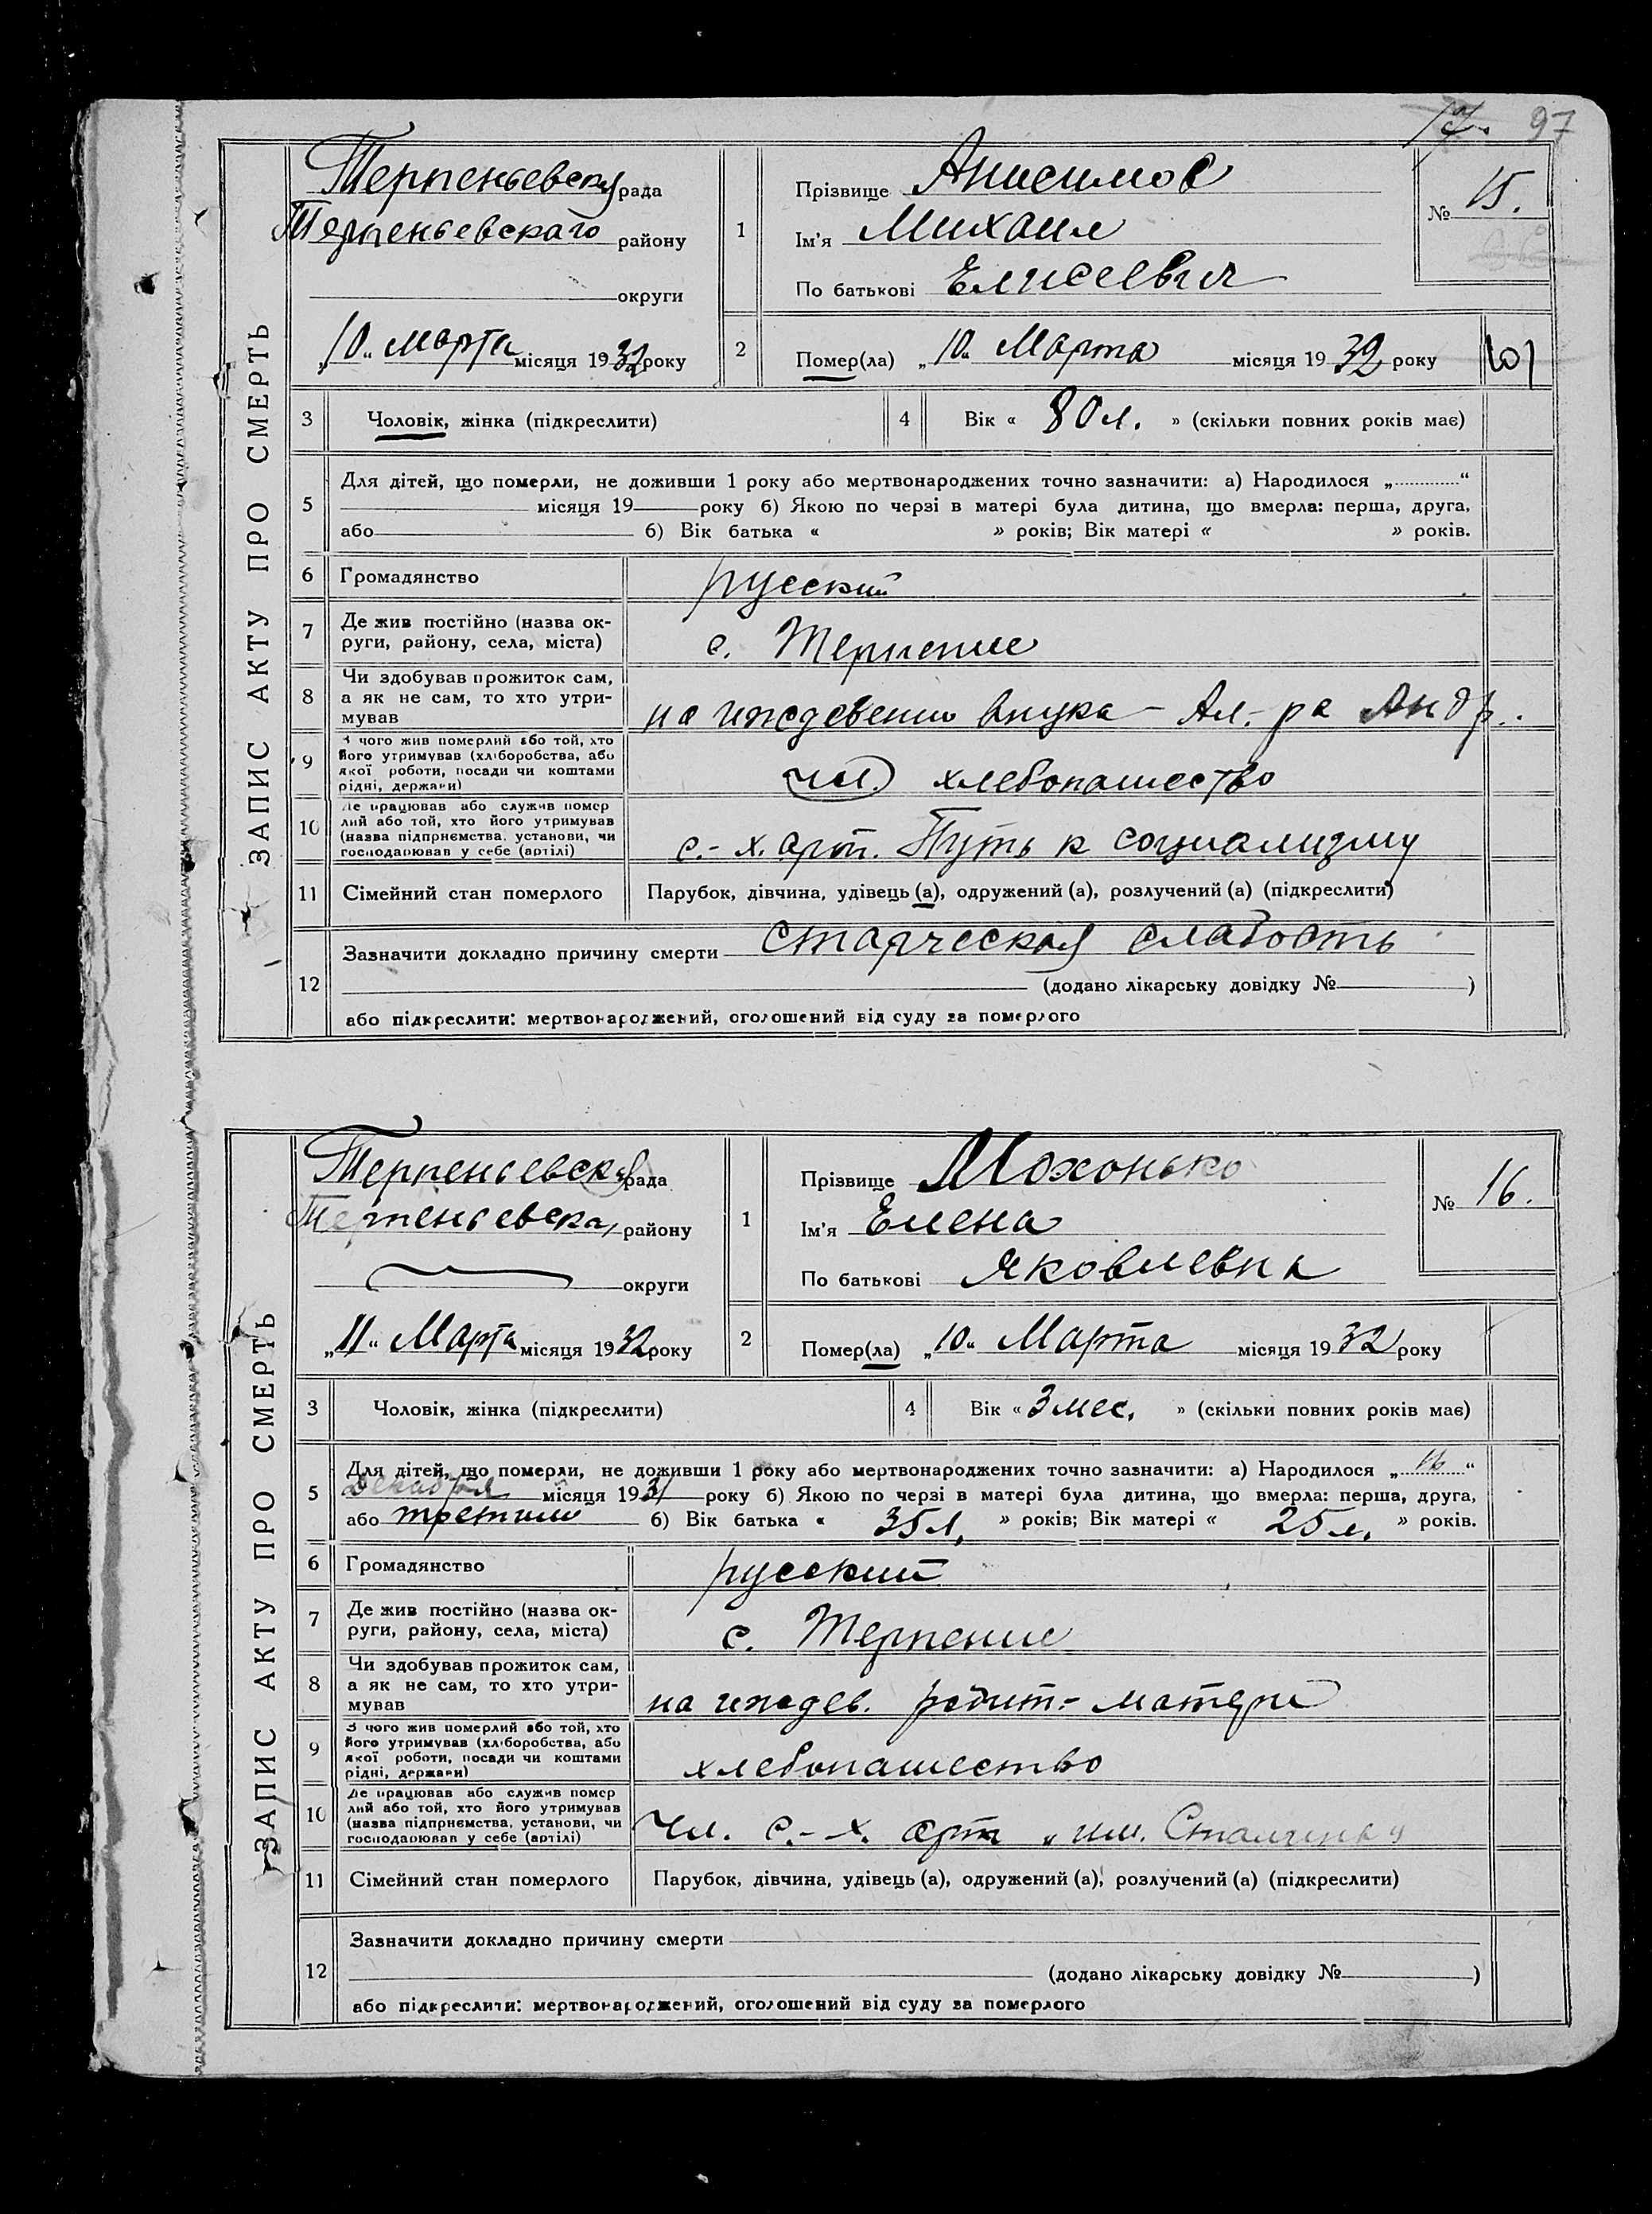 97
ЗАПИС АКТУ ПРО СМЕРТЬ
Терпеньевская рада
Терпеньевскаго району
округи
„10“ марта місяця 1932 року
1
Прізвище Анисимов
Ім'я Михаил
По батькові Елисеевич
№ 15.
2
Помер(ла) „10“ Марта місяця 1932 року
3 Чоловік, жінка (підкреслити)
4 Вік « 80 л. » (скільки повних років має)
5
Для дітей, що померли, не доживши 1 року або мертвонароджених точно зазначити: а) Народилося „ “
місяця 19 року б) Якою по черзі в матері була дитина, що вмерла: перша, друга,
або б) Вік батька « » років; Вік матері « » років.
6 Громадянство русский
7 Де жив постійно (назва ок-
руги, району, села, міста) с. Терпение
8 Чи здобував прожиток сам,
а як не сам, то хто утри-
мував на иждевении внука - Ал.-ра Андр..
9 З чого жив померлий або той, хто
його утримував (хліборобства, або
якої роботи, посади чи коштами
рідні, держави) чл. хлебопашество
10 Де працював або служив помер
лий або той, хто його утримував
(назва підприємства, установи, чи
господарював у себе (артілі) с.-х. арт. Путь к социализму
11 Сімейний стан померлого Парубок, дівчина, удівець (а), одружений (а), розлучений (а) (підкреслити)
12
Зазначити докладно причину смерти старческая слабость
(додано лікарську довідку № )
або підкреслити: мертвонароджений, оголошений від суду за померлого
ЗАПИС АКТУ ПРО СМЕРТЬ
Терпеньевская рада
Терпеньевска, району
округи
„11“ Марта місяця 1932 року
1
Прізвище Мохонько
Ім'я Елена
По батькові Яковлевна
№ 16.
2
Помер(ла) „10“ Марта місяця 1932 року
3 Чоловік, жінка (підкреслити)
4 Вік « 3 мес. » (скільки повних років має)
5
Для дітей, що померли, не доживши 1 року або мертвонароджених точно зазначити: а) Народилося „16“
Декабря місяця 1931 року б) Якою по черзі в матері була дитина, що вмерла: перша, друга,
або третим б) Вік батька « 35 л. » років; Вік матері « 25 л. » років.
6 Громадянство русский
7 Де жив постійно (назва ок-
руги, району, села, міста) с. Терпение
8 Чи здобував прожиток сам,
а як не сам, то хто утри-
мував на иждев. родит.- матери
9 З чого жив померлий або той, хто
його утримував (хліборобства, або
якої роботи, посади чи коштами
рідні, держави) хлебопашество
10 Де працював або служив помер
лий або той, хто його утримував
(назва підприємства, установи, чи
господарював у себе (артілі) Чл. с.-х. арт. „им.
11 Сімейний стан померлого Парубок, дівчина, удівець (а), одружений (а), розлучений (а) (підкреслити)
12
Зазначити докладно причину смерти
(додано лікарську довідку № )
або підкреслити: мертвонароджений, оголошений від суду за померлого